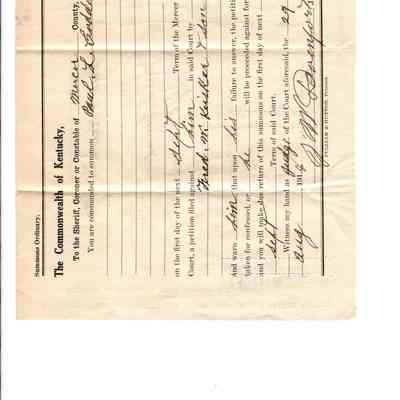 Summons Ordinary.
The Commonwealth of Kentucky,
To the Sheriff, Coroner or Constable of Mercer County,
You are commanded to summon Paul. L.
on the first day of the next Sept Term of the Mercer
Court, a petition filed against him in said Court by
Fred. M.
And warn him that upon his failure to answer, the petition
taken for confessed, or he will be proceeded against for
and you will make due return of this summons on the first day of next
Sept Term of said Court.
Witness my hand as Judge of the Court aforesaid, the 29
Aug 191